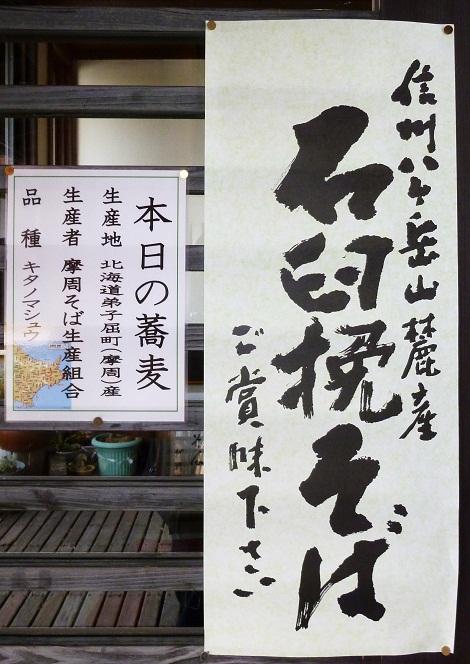 信州八ヶ岳山麓産
石臼挽そば
ご賞味下さい
本日の蕎麦
生産地 北海道弟子屈町(摩周)産
生産者 摩周そば生産組合
品種 キタノマシュウ